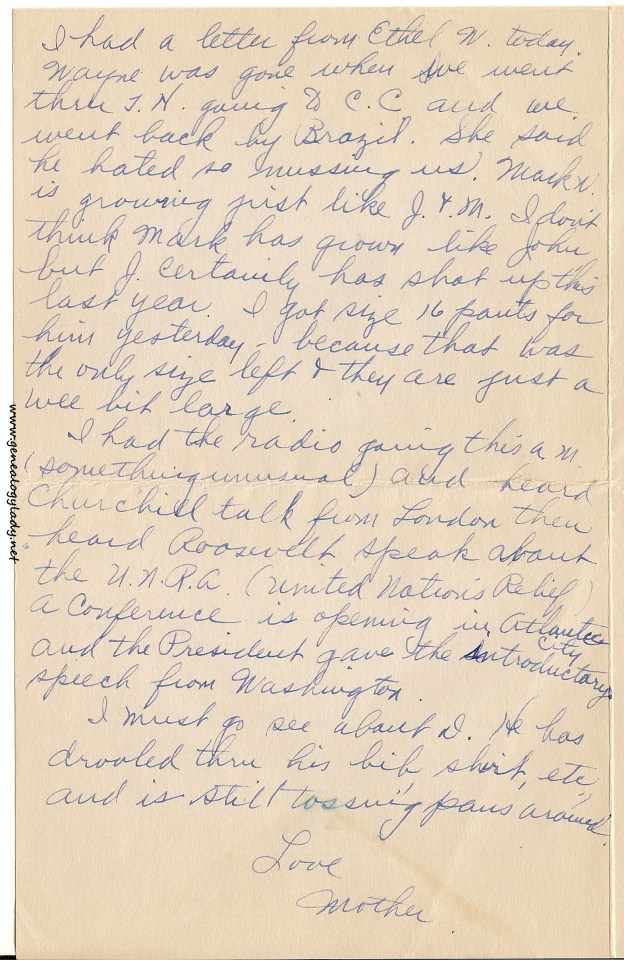 I had a letter from Ethel W. today.
Wayne was gone when we went
thru T.H. going to C.C and we
went back by Brazil. She said
he hated so mussing us. Mark W.
is growing just like J. & M. I don't
think Mark has grown like John
but J. certainily has shot up this
last year. I got size 16 pants for
him yesterday - because that was
the only size left & they are just a
wee bit large.
I had the radio going this a.m.
(something unusual) and heard
Churchill talk from London then
heard Roosevelt speak about
the U.N.R.A. (United Nation's Relief)
a conference is opening in Atlantic
City
and the President gave the introductory
speech from Washington.
I must go see about D. He has
drooled thru his bib, shirt, etc.,
and is still tossing pans around.
Love
Mother
www.genealogylady.net